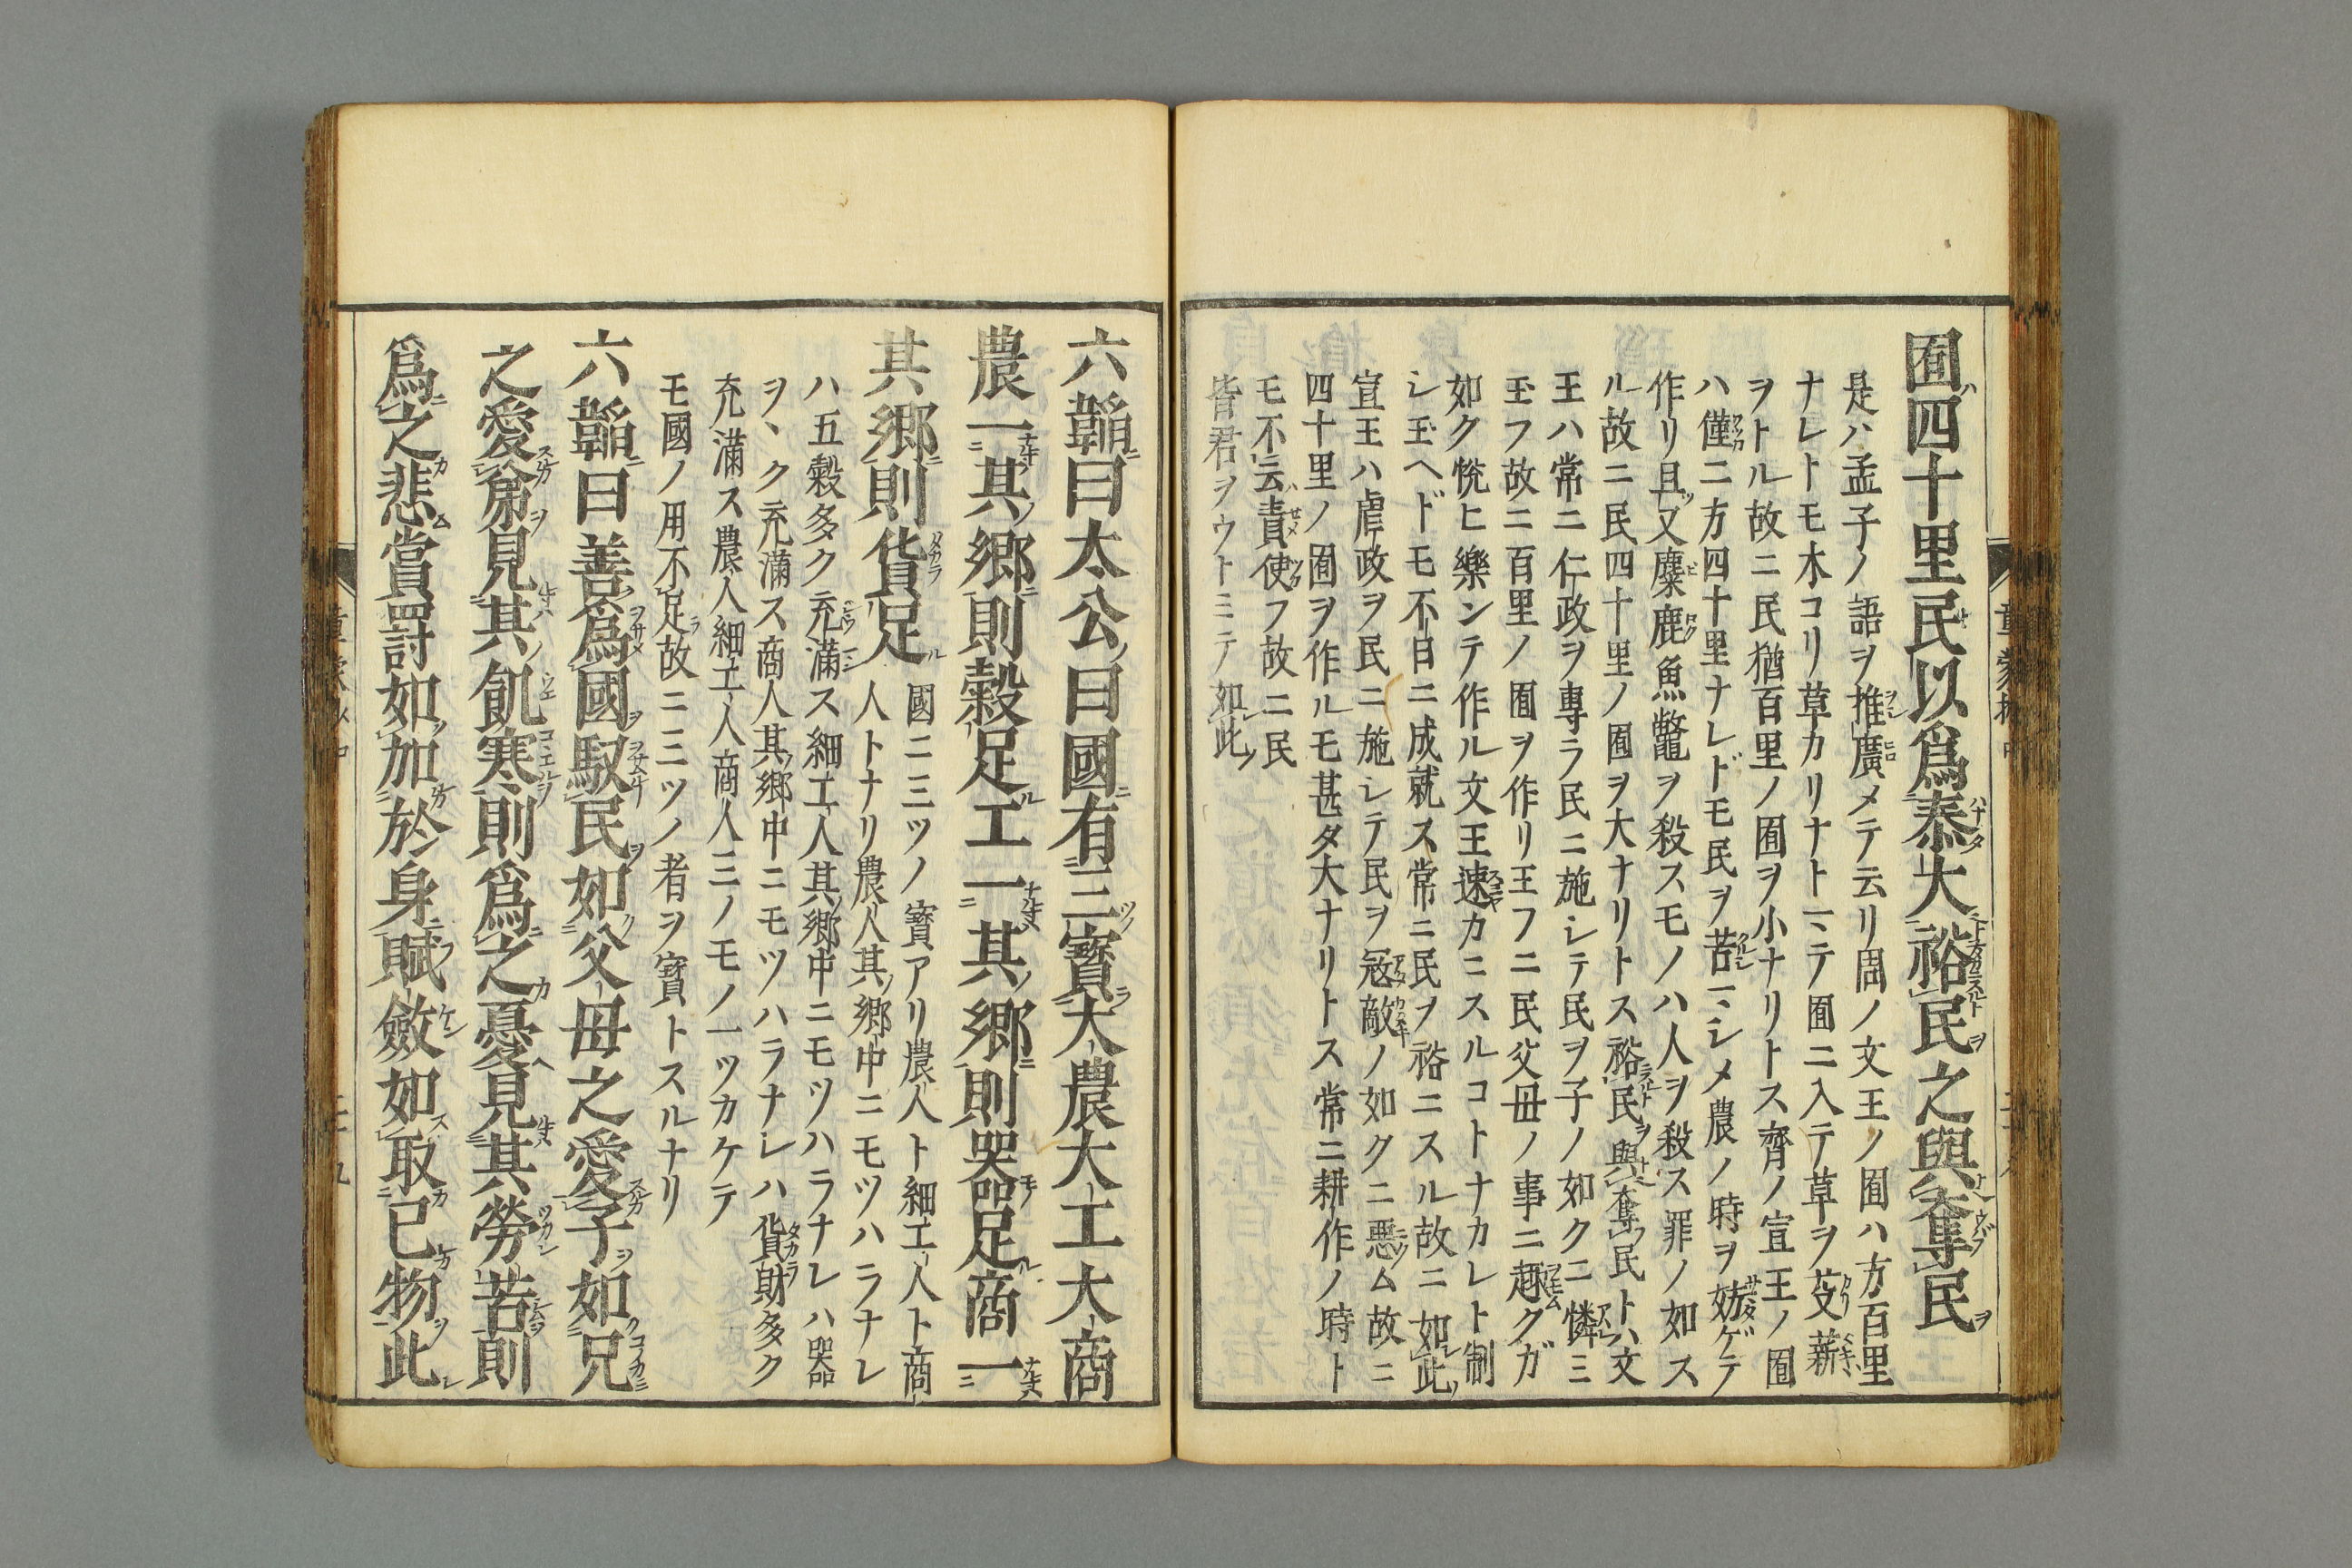 囿四十里民以爲泰大裕民之與奪民
是ハ孟子ノ語ヲ推廣メテ云リ周ノ文王ノ囿ハ方百里
ナレトモ木コリ草カリナトマテ囿ニ入テ草ヲ芟薪
ヲトル故ニ民猶百里ノ囿ヲ小ナリトス齊ノ宣王ノ囿
ハ僅ニ方四十里ナレドモ民ヲ苦マシメ農ノ時ヲ妨ゲテ
作リ且又麋鹿魚鼈ヲ殺スモノハ人ヲ殺ス罪ノ如ス
ル故ニ民四十里ノ囿ヲ大ナリトス裕民與奪民トハ文
王ハ常ニ仁政ヲ專ラ民ニ施シテ民ヲ子ノ如クニ憐ミ
玉フ故ニ百里ノ囿ヲ作リ王フニ民父母ノ事ニ趣クガ
如ク悦ヒ樂ンテ作ル文王速カニスルコトナカレト制
シ玉ヘドモ不日ニ成就ス常ニ民ヲ裕ニスル故ニ如此
宣王ハ虐政ヲ民ニ施シテ民ヲ冦敵ノ如クニ惡ム故ニ
四十里ノ囿ヲ作ルモ甚タ大ナリトス常ニ耕作ノ時ト
モ不云責使フ故ニ民
皆君ヲウトミテ如此
六韜曰太公曰國有三寶大農大工大商
農一其鄉則穀足工一其鄉則器足商一
其鄉則貨足
國ニ三ツノ寳アリ農人ト細工人ト商
人トナリ農人其鄉中ニモツハラナレ
ハ五穀多ク充滿ス細工人其鄉中ニモツハラナレハ器
ヲヽク充滿ス商人其鄉中ニモツハラナレハ貨財多ク
充滿ス農人細工人商人三ノモノ一ツカケテ
モ國ノ用不足故ニ三ツノ者ヲ寳トスルナリ
六韜曰善爲國馭民如父母之愛子如兄
之愛弟見其飢寒則爲之憂見其勞苦則
爲之悲賞罸如加於身賦斂如取己物此